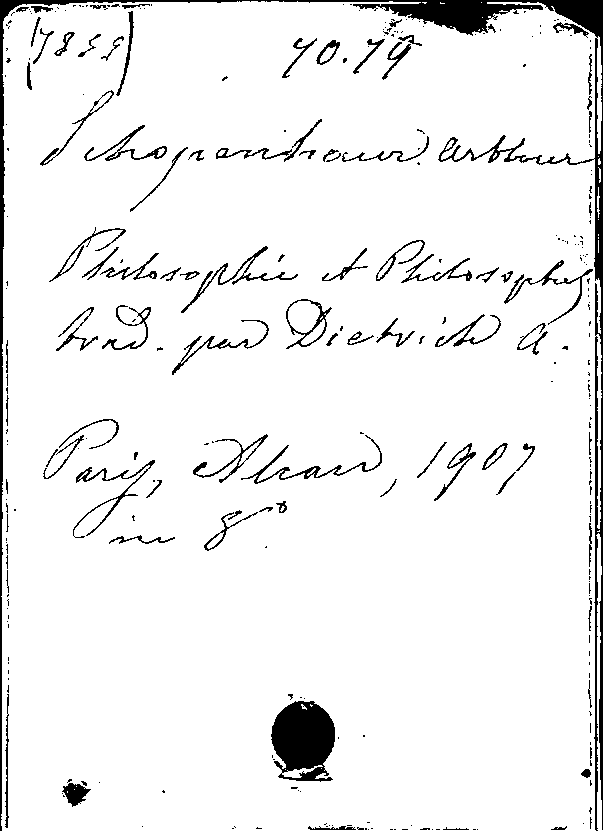 70.79
Schopenhauer. Arthur
Philosophie et Philosophes
trad. par Dietrich A.
Paris, Alcan, 1907
in 8°